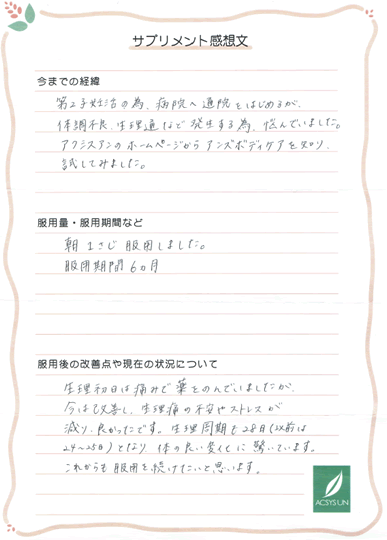 サプリメント感想文
今までの経緯
第2子妊活の為、病院へ通院をはじめるが、
体調不良、生理通など発生する為、悩んでいました。
アクシスアンのホームページからアンズボディケアを知り、
試してみました。
服用量・服用期間など
朝 1さじ 服用しました。
服用期間 6ヵ月
服用後の改善点や現在の状況について
生理初日は痛みで薬をのんでいましたが、
今は改善し、生理痛の不安やストレスが
減り、良かったです。生理周期も28日(以前は
24〜25日)となり、体の良い変化に驚いています。
これからも服用を続けたいと思います。
ACSYS UN